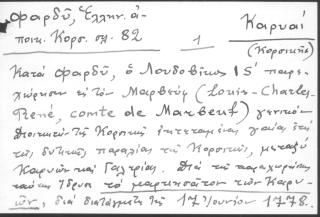 Φαρδῦ, Ἑλλην. ἀ-
ποικ. Κορσ. σελ. 82
1
Καρυαί
(Κορσικῆς)
Κατὰ Φαρδῦ, ὁ Λουδοβῖκος ΙΣ΄ παρε-
χώρησεν εἰς τὸν Μαρβεὺφ (Louis-Charles-
René, comte de Marbeuf) γενικὸν
Διοικητὴν τῆς Κορσικῆς ἐκτεταμένας γαίας ἐπὶ
τῆς δυτικῆς παραλίας τῆς Κορσικῆς, μεταξὺ
Καρυῶν καὶ Γαλερίας. Διὰ τῆς παραχωρήσεως
ταύτης ἵδρυσε τὸ μαρκησᾶτον τῶν Καρυ-
ῶν, διὰ διατάγματος τῆς 17 Ἰουνίου 1778.